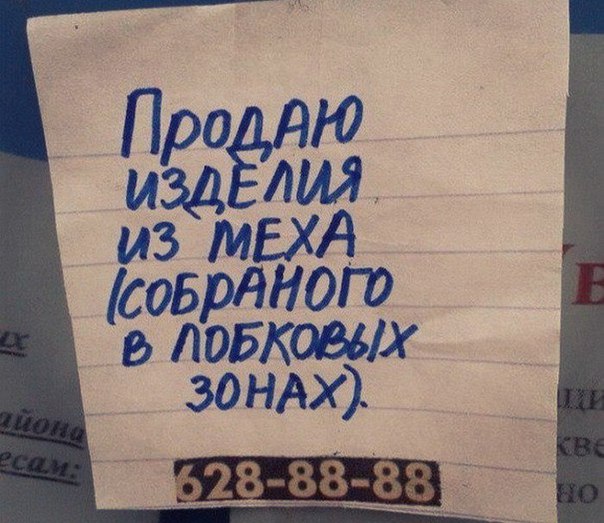 Продаю
изделия
из меха
(собраного
в лобковых
зонах).
628-88-88
В
их
айона
есам:
щи
кве
но